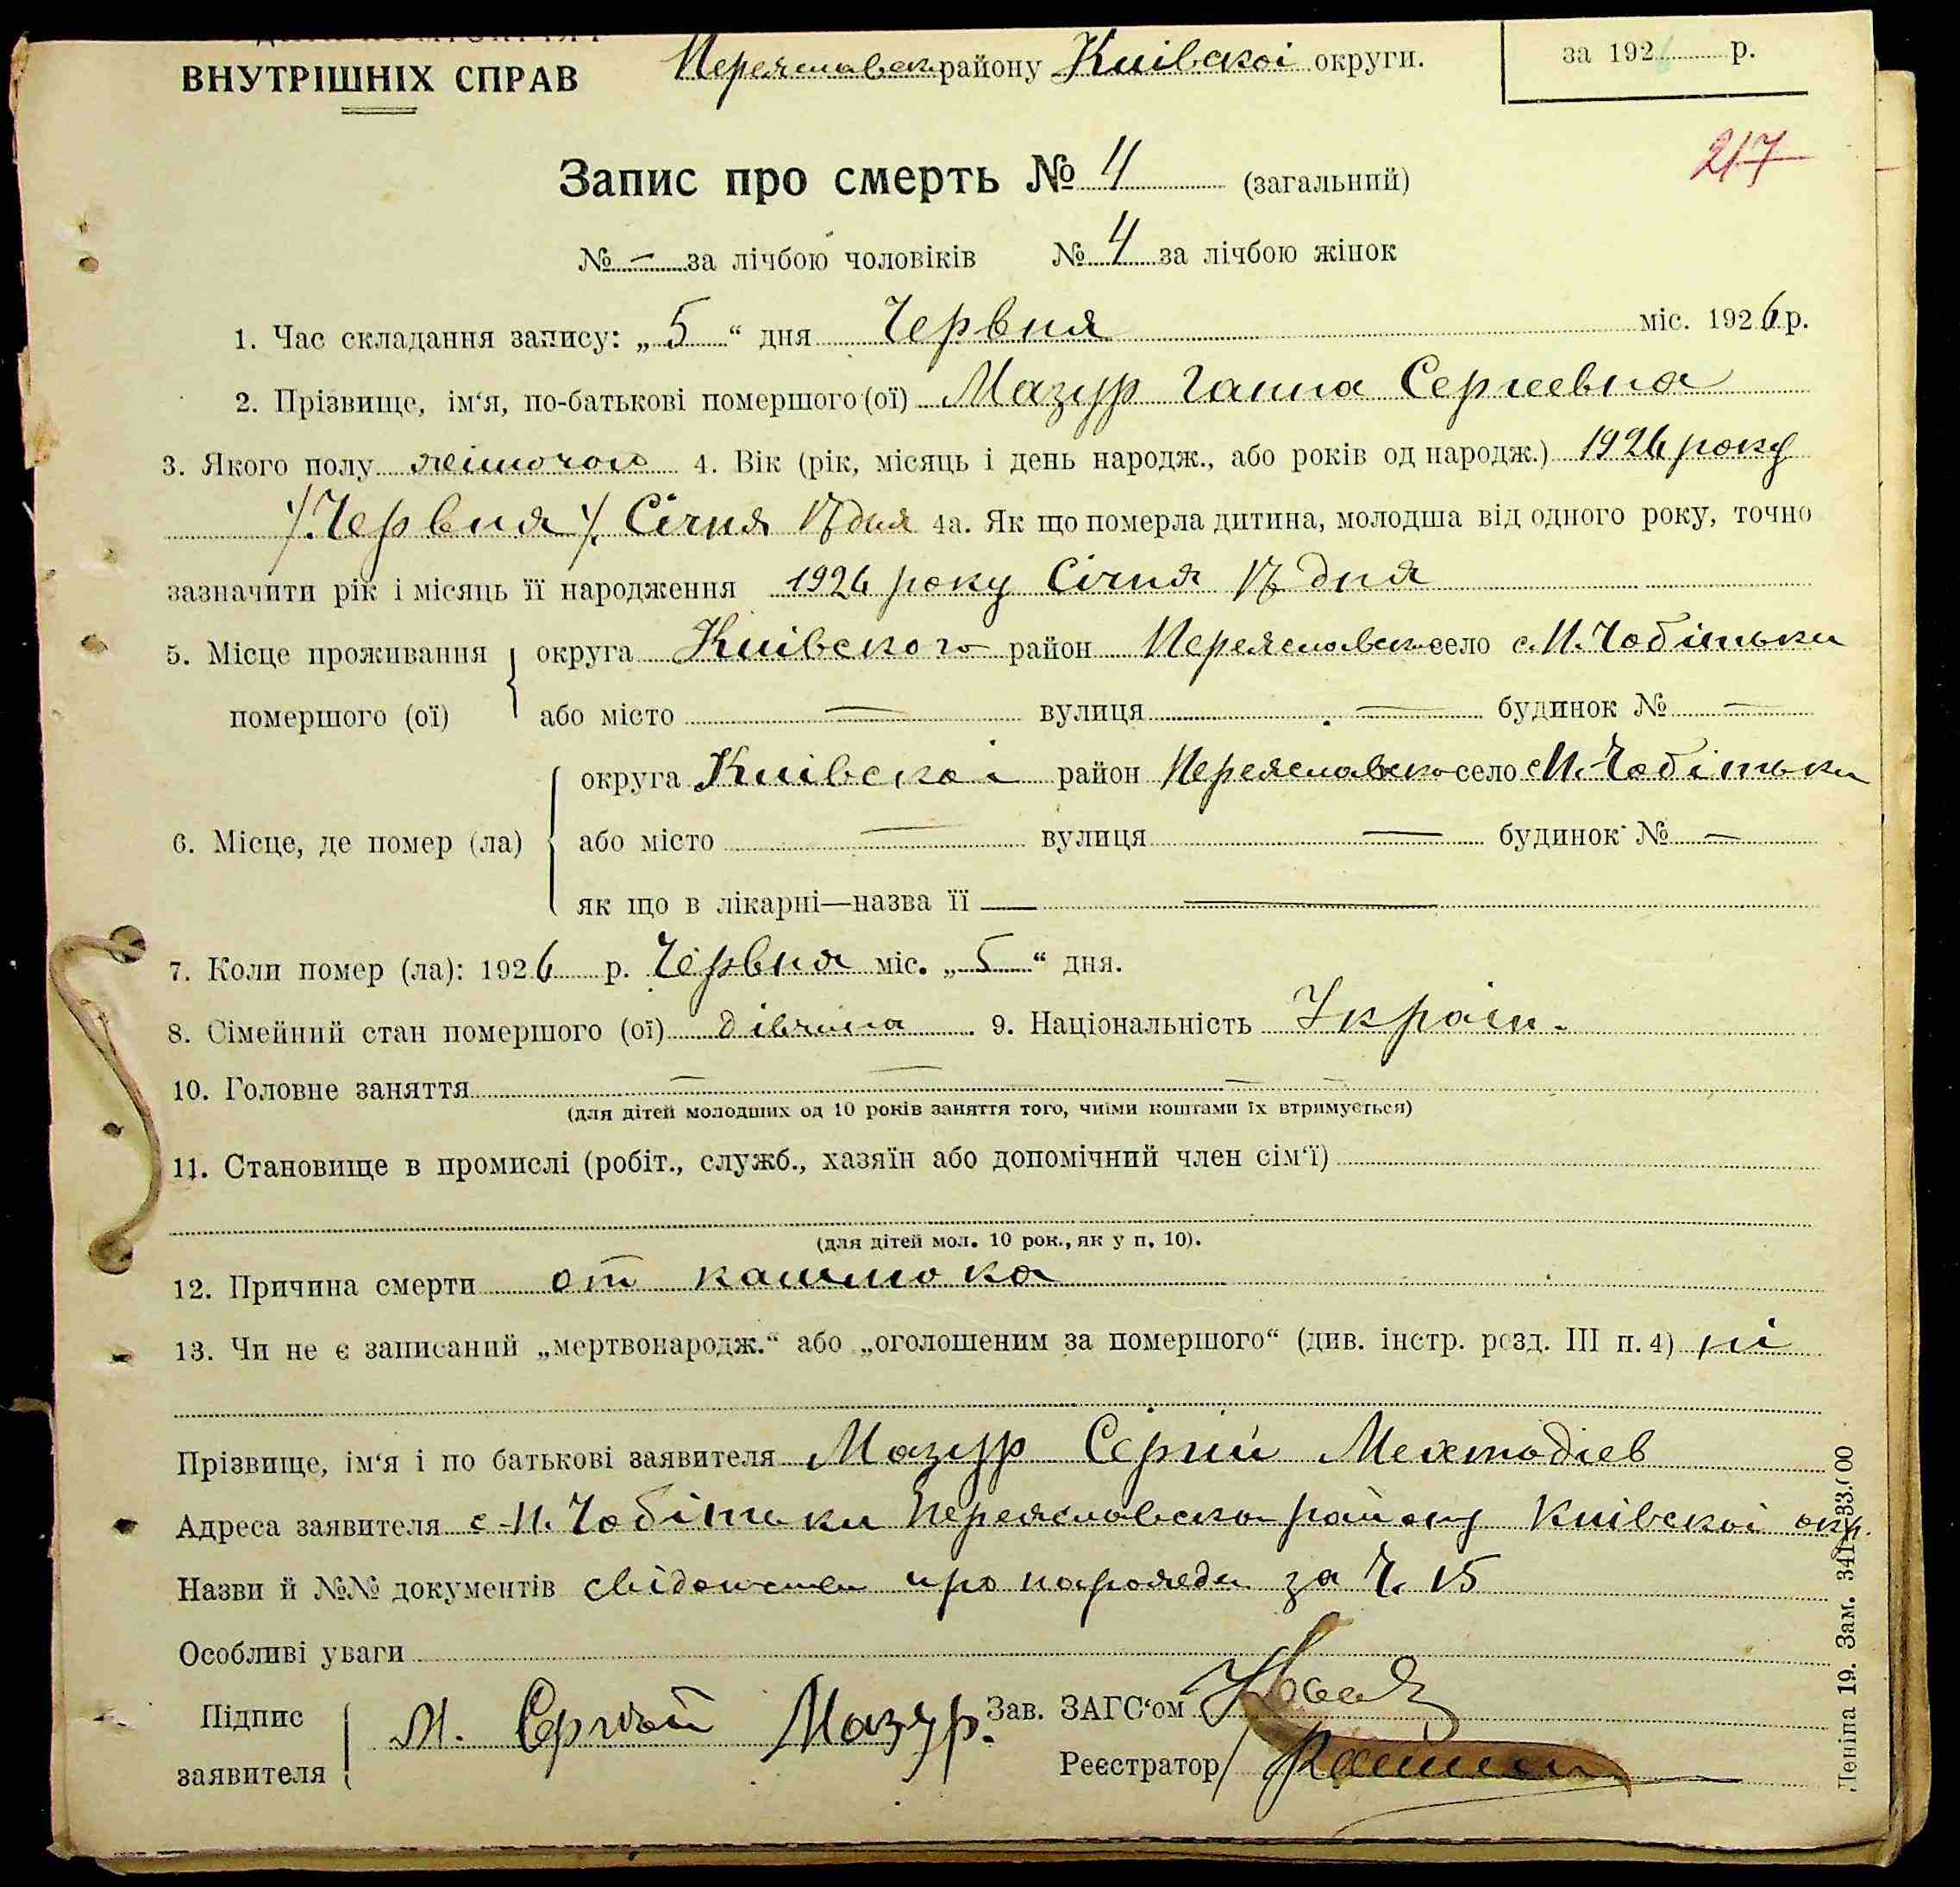 ВНУТРІШНІХ СПРАВ
Переяславськ району Київскоі округи.
за 1926 р.
217
Запис про смерть № 4 (загальний)
№ — за лічбою чоловіків № 4 за лічбою жінок
1. Час складання запису: „ 5 “ дня Червня міс. 1926 р.
2. Прізвище, ім‘я, по-батькові помершого (ої) Мазур Ганна Сергеевна
3. Якого полу жіночою 4. Вік (рік, місяць і день народж., або років од народж.) 1926 року
/. Червня /. Січня 17 дня 4а. Як що померла дитина, молодша від одного року, точно
зазначити рік і місяць її народження 1926 року Січня 17 дня
5. Місце проживання округа Киівского район Переяславск село с. П. Чобітьки
помершого (ої) або місто — вулиця — будинок № —
округа Киівскоі район Переяславско село с П. Чобітьки
6. Місце, де помер (ла) або місто — вулиця — будинок № —
як що в лікарні—назва її —
7. Коли помер (ла): 1926 р. Червня міс. „ 5 “ дня.
8. Сімейний стан помершого (ої) дівчина 9. Національність Україн.
10. Головне заняття — — — —
(для дітей молодших од 10 років заняття того, чиїми коштами їх втримується)
11. Становище в промислі (робіт., служб., хазяїн або допомічний член сім‘ї)
(для дітей мол. 10 рок., як у п. 10).
12. Причина смерти от кашлюка
13. Чи не є записаний „мертвонародж.“ або „оголошеним за помершого“ (див. інстр. розд. III п. 4) ні
Прізвище, ім‘я і по батькові заявителя Мазур Сергій Мехтодіев
Адреса заявителя с П. Чобітьки Переяславско району Киівскоі окр.
Назви й №№ документів свідоцтво про народж за Ч. 15
Особливі уваги
Підпис М. Сергій Мазур. Зав. ЗАГС‘ом
заявителя Реєстратор
Леніна 19. Зам. 341—33.000